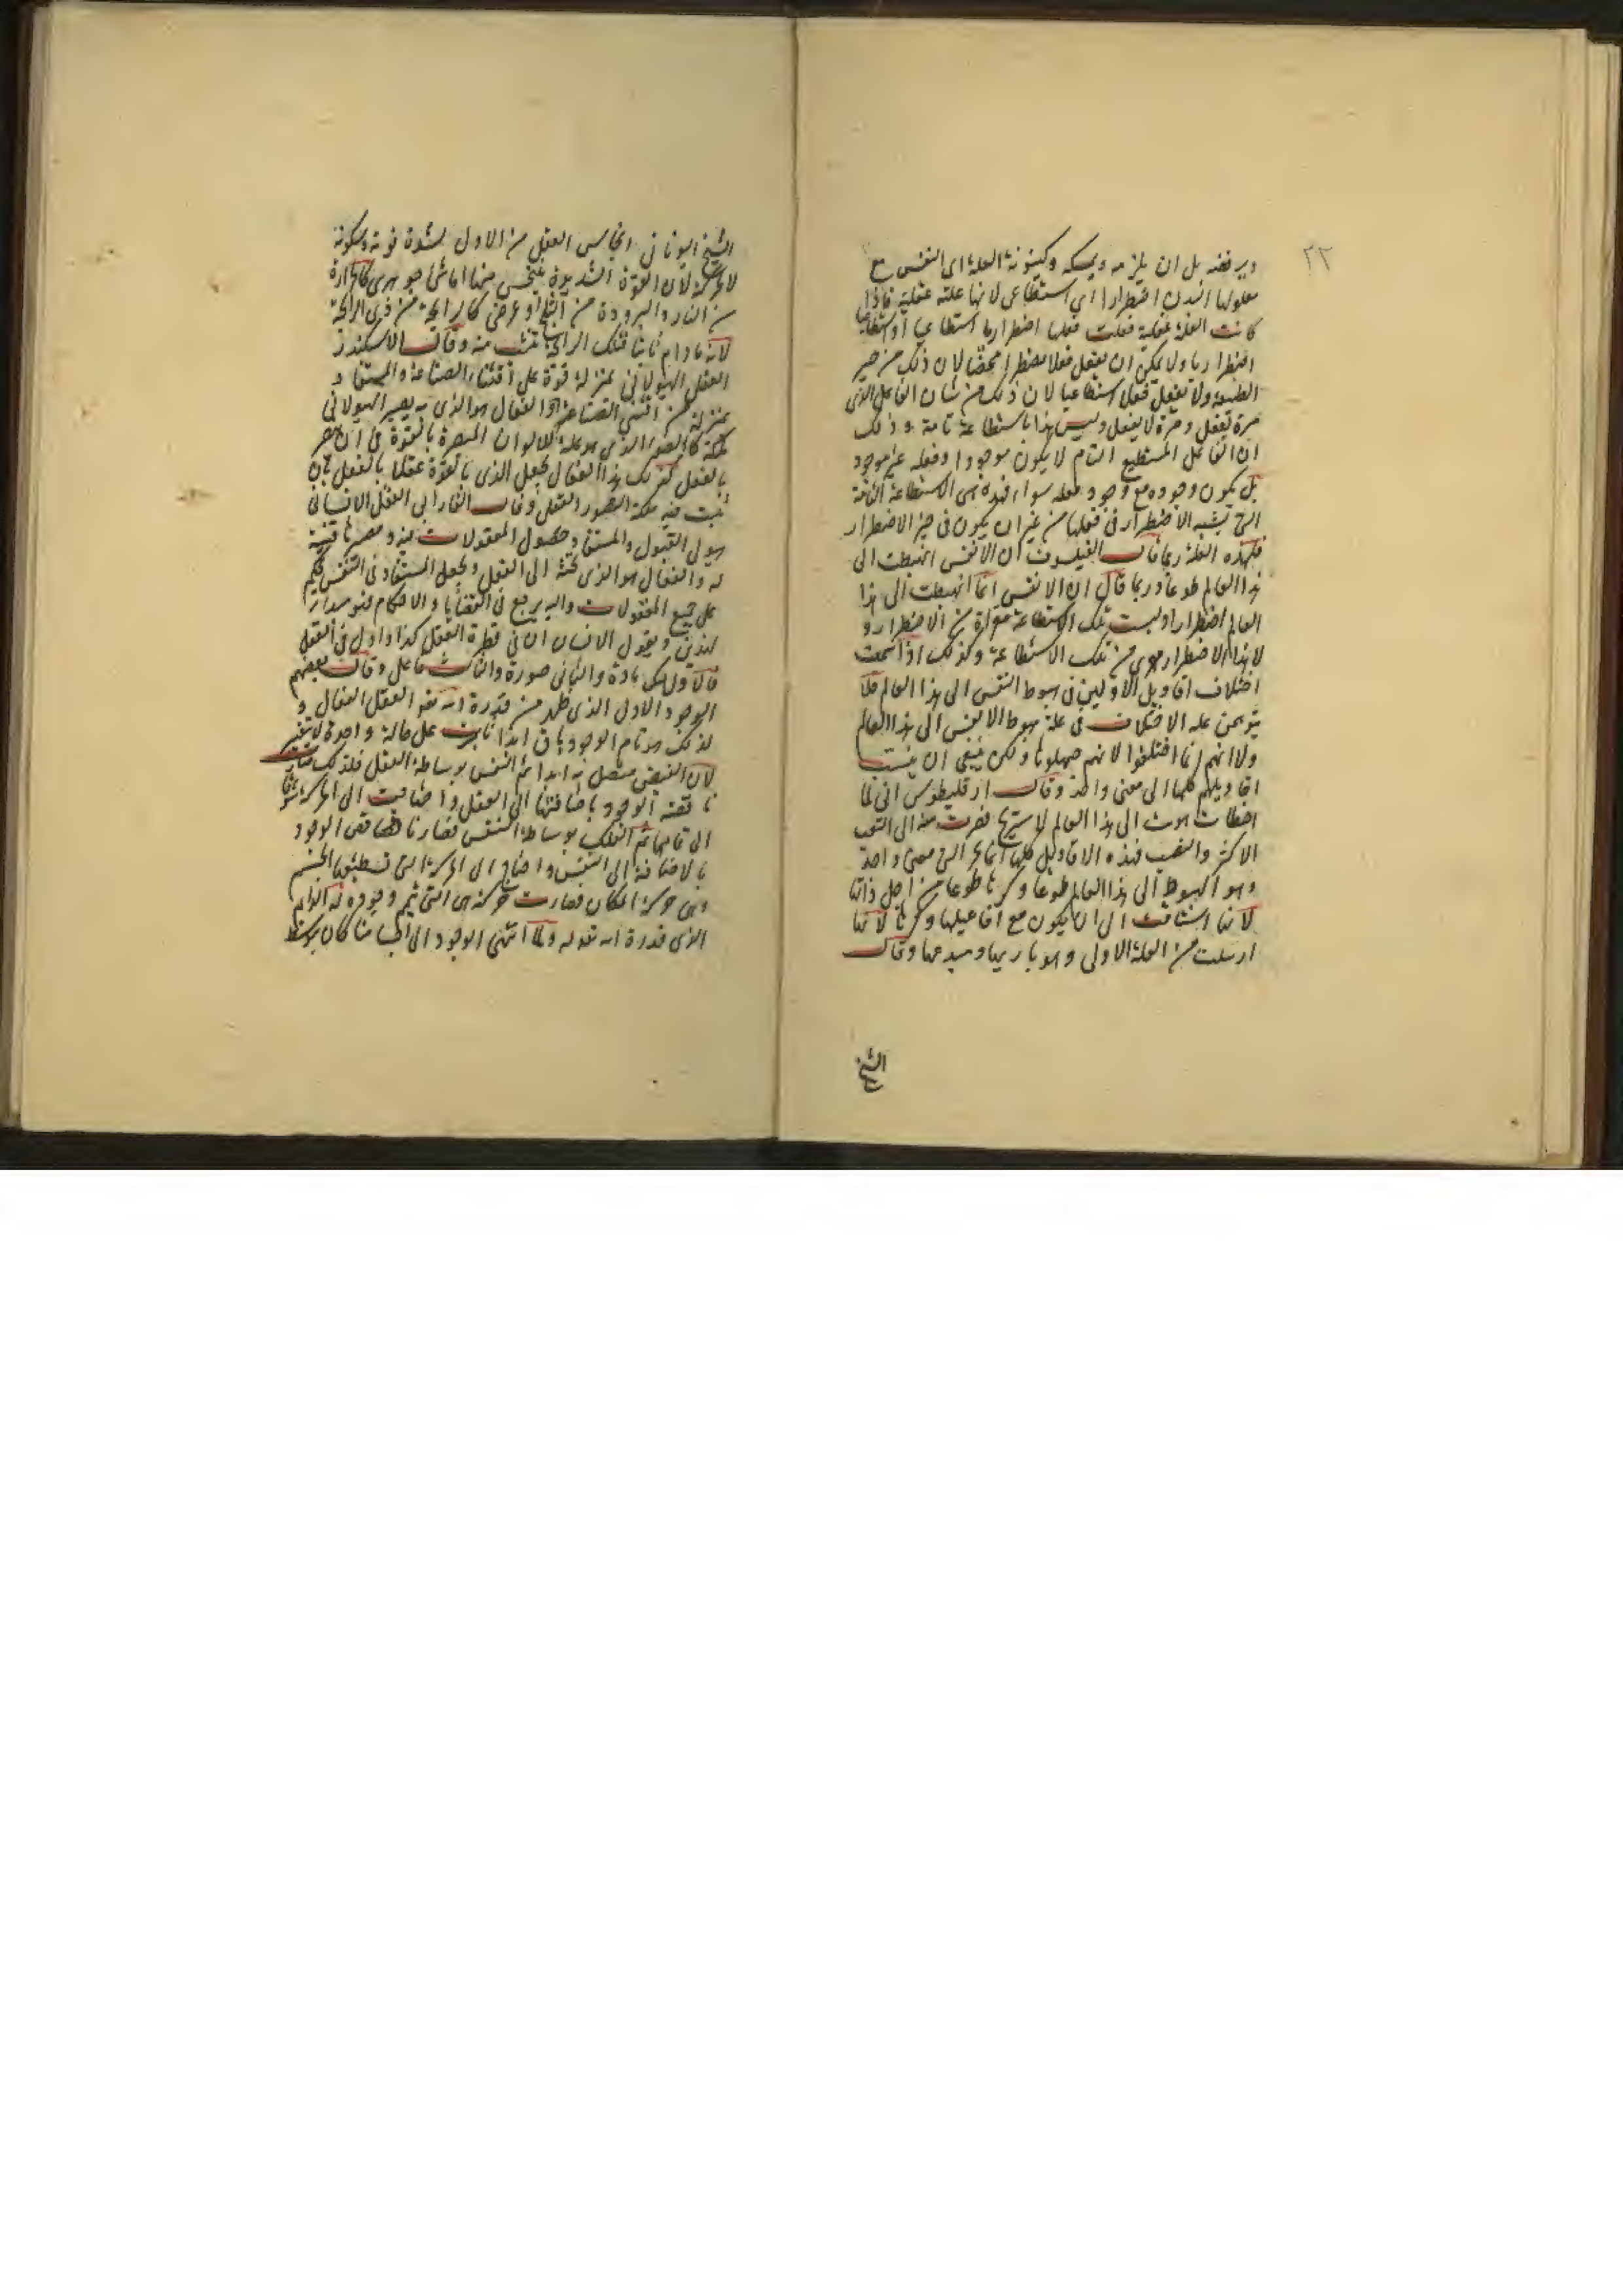 ٢٢
ويرفضه بل ان يلزمه ويمسكه وكينونة العلة اى النفس مع
معلولها البدن اضطرارا اى استطاعى لانها علة عقلية فاذا
كانت العلة عقلية فعلت فعلها اضطراريا استطاعيا او استطاعيا
اضطراريا ولا يمكن ان يفعل فعلا مضطرا محضا لان ذلك من حيز
الطبيعة ولا يفعل فعلا استطاعيا لان ذلك من شان الفاعل الذى
مرة يفعل ومرة لا يفعل وليس هذا باستطاعة تامة وذلك
ان الفاعل المستطيع التام لا يكون موجودا وفعله غير موجود
بل يكون وجوده مع وجود فعله سواء فهذه هى الاستطاعة التامة
التى يشبه الاضطرار فى فعلها من غير ان يكون فى حيز الاضطرار
فلهذه العلة ربما قال الفيلسوف ان الانفس انهبطت الى
هذا العالم طوعا وربما قال ان الانفس انما انهبطت الى هذا
العالم اضطرارا وليست تلك الاستطاعة معراة من الاضطرار و
لا هذا الاضطرار معرى من تلك الاستطاعة وكذلك اذا سمعت
اختلاف اقاويل الاولين فى هبوط النفس الى هذا العالم فلا
يتوهمن عله الاختلاف فى علة هبوط الانفس الى هذا العالم
ولا انهم انما اختلفوا لانهم جهلوها ولكن ينبغى ان ينسب
اقاويلهم كلها الى معنى واحد وقال ارقليطوس انى لما
اخطات هويت الى هذا العالم لاستريح فضرت منه الى التعب
الاكثر والنصب فهذه الاقاويل كلها انما تجرى الى معنى واحد
وهو الهبوط الى هذا العالم طوعا وكرها طوعا من اجل ذاتها
لانها اشتاقت الى ان يكون مع افاعيلها وكرها لانها
ارسلت من العلة الاولى وهو باريها ومبدعها وقال
الشيخ
الشيخ اليونانى انبجاس العقل من الاول لشدة قوته وسكونه
لا لحركة لان القوة الشديدة ينبجس منها اما شئ جوهرى كالحرارة
من النار والبرودة من الثلج او عرضى كالرايحة من ذى الرايحة
لانه مادام ثابتا فتلك الرايحة تنبث منه وقال الاسكندر
العقل الهيولانى بمنزلة قوة على اقتناء الصناعة والمستفاد
بمنزلة من اقتنى الصناعة والفعال هو الذى به يصير الهيولانى
ملكة كالضوء الذى هو علة للالوان المبصرة بالقوة فى ان تبصر
بالفعل كذلك هذا الفعال يجعل الذى بالقوة عقلا بالفعل بان
يثبت فيه ملكة التصور العقلى وقال الفارابى العقل الانسانى
هيولى القبول والمستفاد حصول المعقولات فيه ومصيرها قنية
له والفعال هو الذى تحثه الى العقل ويجعل المستفاد فى النفس فيحكم
على جميع المعقولات واليه يرجع فى القضايا والاحكام فهو مبداء
لهذين ويقول الانسان ان فى فطرة العقل كذا واول فى العقل
فالاول مادة والثانى صورة والثالث فاعل وقال بعضهم
الوجود الاول الذى ظهر من قدرة الله تعالى العقل الفعال و
لذلك هو تام الوجود باق ابدا ثابت على حالة واحدة لا تتغير
لان الفيض متصل به ابدا ثم النفس بوساطة العقل فلذلك صارت
ناقصة الوجود باضافتها الى العقل واحتاجت الى الحركة شوقا
الى تمامها ثم الفلك بوساطة النفس فصار ناقصا فى الوجود
بالاضافة الى النفس واحتاج الى الحركة التى تستطيعها الجسم
وهى حركة المكان فصارت حركته هى التى يتم وجوده له الدايم
الذى قدره الله تعالى له ولما انتهى الوجود الى اجسامنا كان بتوسط